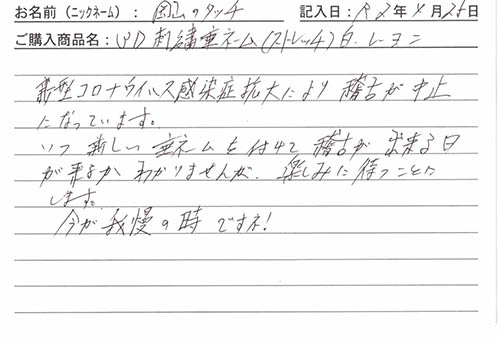 お名前（ニックネーム）：岡山のタッチ 記入日：R2年4月25日
ご購入商品名：刺繍垂ネーム（ストレッチ）白.レーヨン
新型コロナウイルス感染症拡大により 稽古が中止
になっています。
いつ 新しい 垂ネームを付けて 稽古が 出来る日
が来るか わかりませんが、楽しみに 待つことに
します。
今が我慢の時ですネ!